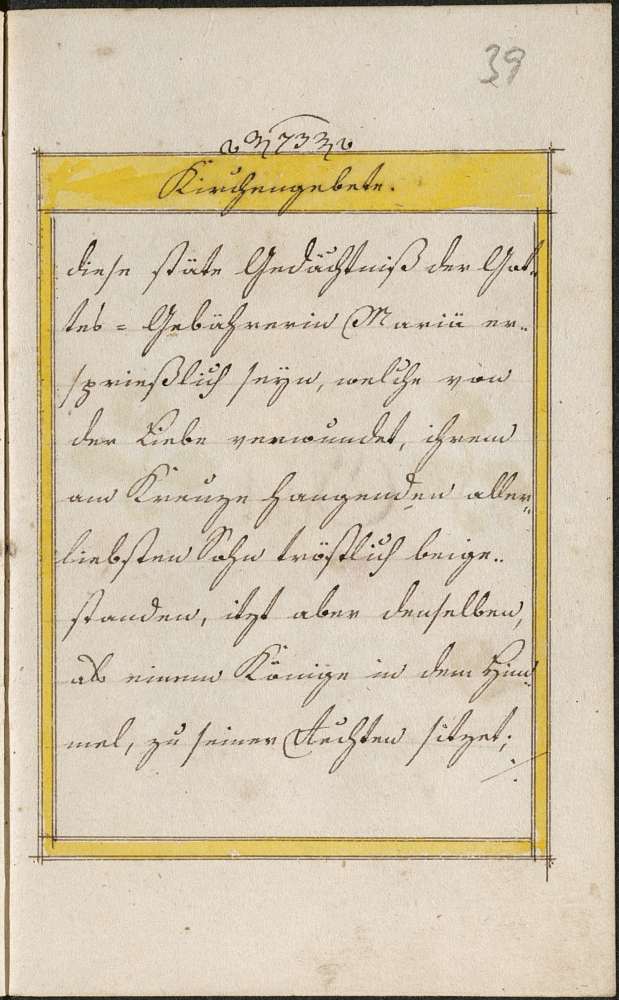 39
73
Kirchengebete.
diese stäte Gedächtniß der Got„
tes = Gebährerin Mariä er„
sprießlich seyn, welche von
der Liebe verwundet, ihrem
am Kreuze hangenden aller„
liebsten Sohn tröstlich beige„
standen, itzt aber denselben,
als einem Könige in dem Him„
mel, zu seiner Rechten sitzet;